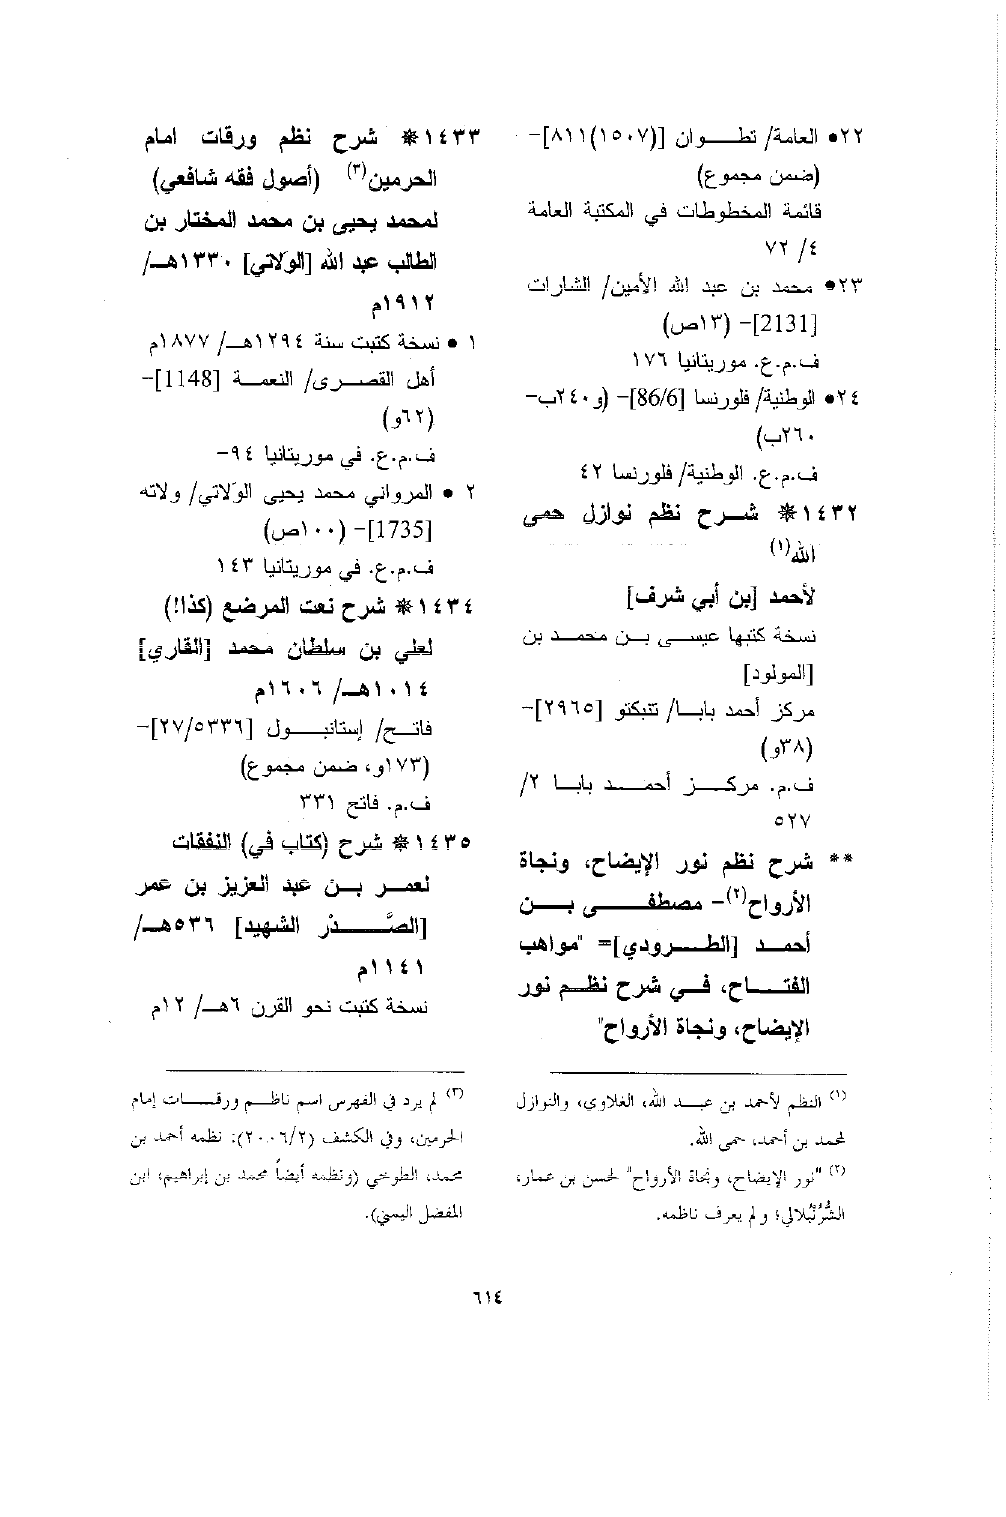 ٢٢• العامة/ تطـــوان [(١٥٠٧)٨١١]-
(ضمن مجموع)
قائمة المخطوطات في المكتبة العامة
٤/ ٧٢
٢٣• محمد بن عبد الله الأمين/ الشارات
[2131]- (١٣ص)
ف.م.ع. موريتانيا ١٧٦
٢٤• الوطنية/ فلورنسا [86/6]- (و٢٤٠ب-
٢٦٠ب)
ف.م.ع. الوطنية/ فلورنسا ٤٢
١٤٣٢* شـــرح نظم نوازل حمى
الله(١)
لأحمد [بن أبي شرف]
نسخة كتبها عيســى بــن محمــد بن
[المولود]
مركز أحمد بابـــا/ تنبكتو [٢٩٦٥]-
(٣٨و)
ف.م. مركـــز أحمـــد بابـــا ٢/
٥٢٧
** شرح نظم نور الإيضاح، ونجاة
الأرواح(٢)- مصطفــــى بــــن
أحمــد [الطـــرودي]= "مواهب
الفتـــاح، فــي شرح نظــم نور
الإيضاح، ونجاة الأرواح"
(١) النظم لأحمد بن عبــد الله، الغلاوي، والنوازل
لمحمد بن أحمد، حمى الله.
(٢) "نور الإيضاح، ونجاة الأرواح" لحسن بن عمار،
الشُّرُنْبُلالي؛ ولم يعرف ناظمه.
١٤٣٣* شرح نظم ورقات امام
الحرمين(٣) (أصول فقه شافعي)
لمحمد يحيى بن محمد المختار بن
الطالب عبد الله [الولاتي] ١٣٣٠هـ/
١٩١٢م
١ • نسخة كتبت سنة ١٢٩٤هـ/ ١٨٧٧م
أهل القصـــرى/ النعمــة [1148]-
(٦٢و)
ف.م.ع. في موريتانيا ٩٤-
٢ • المرواني محمد يحيى الولاتي/ ولاته
[1735]- (١٠٠ص)
ف.م.ع. في موريتانيا ١٤٣
١٤٣٤* شرح نعت المرضع (كذا!)
لعلي بن سلطان محمد [القاري]
١٠١٤هـ/ ١٦٠٦م
فاتــح/ إستانبـــول [٢٧/٥٣٣٦]-
(١٧٣و، ضمن مجموع)
ف.م. فاتح ٣٣١
١٤٣٥* شرح (كتاب في) النفقات
لعمــر بــن عبد العزيز بن عمر
[الصَّـــدْر الشهيد] ٥٣٦هـ/
١١٤١م
نسخة كتبت نحو القرن ٦هـ/ ١٢م
(٣) لم يرد في الفهرس اسم ناظــم ورقـــات إمام
الحرمين، وفي الكشف (٢٠٠٦/٢): نظمه أحمد بن
محمد، الطوخي (ونظمه أيضاً محمد بن إبراهيم، ابن
المفضل اليمني).
٦١٤